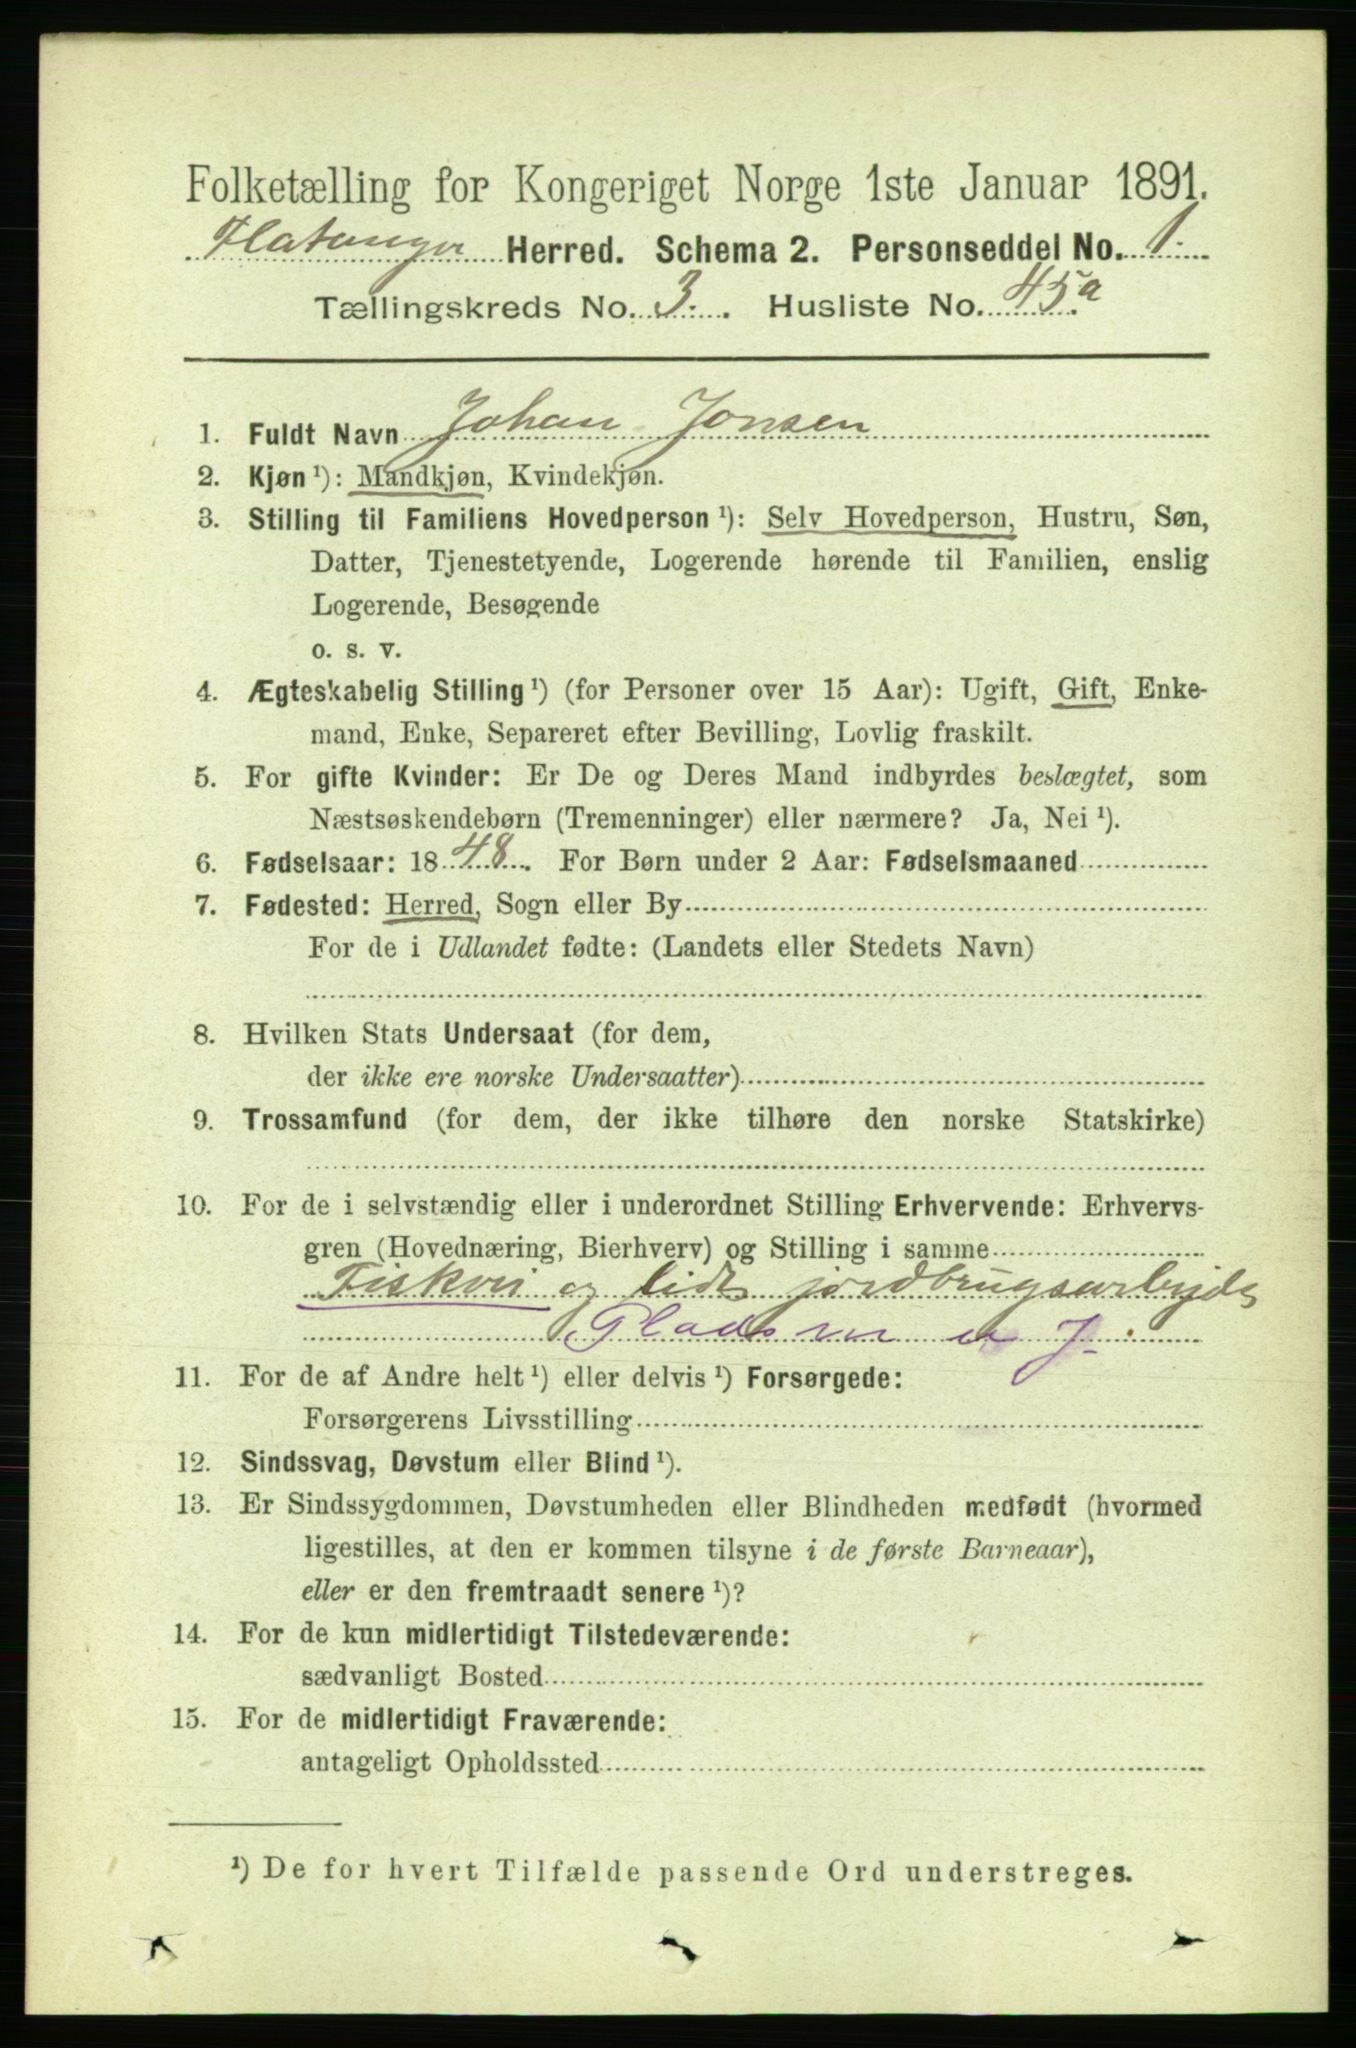 Folketælling for Kongeriget Norge 1ste Januar 1891.
Flatanger Herred. Schema 2. Personseddel No. 1.
Tællingskreds No. 3. Husliste No. 45a
1. Fuldt Navn Johan Jonsen
2. Kjøn ¹): Mandkjøn, Kvindekjøn.
3. Stilling til Familiens Hovedperson ¹): Selv Hovedperson, Hustru, Søn,
Datter, Tjenestetyende, Logerende hørende til Familien, enslig
Logerende, Besøgende
o. s. v.
4. Ægteskabelig Stilling ¹) (for Personer over 15 Aar): Ugift, Gift, Enke-
mand, Enke, Separeret efter Bevilling, Lovlig fraskilt.
5. For gifte Kvinder: Er De og Deres Mand indbyrdes beslægtet, som
Næstsøskendebørn (Tremenninger) eller nærmere? Ja, Nei ¹).
6. Fødselsaar: 1848. For Børn under 2 Aar: Fødselsmaaned
7. Fødested: Herred, Sogn eller By
For de i Udlandet fødte: (Landets eller Stedets Navn)
8. Hvilken Stats Undersaat (for dem,
der ikke ere norske Undersaatter)
9. Trossamfund (for dem, der ikke tilhøre den norske Statskirke)
10. For de i selvstændig eller i underordnet Stilling Erhvervende: Erhvervs-
gren (Hovednæring, Bierhverv) og Stilling i samme
Fiskeri og lidt jordbrugsarbejde
Pladsm
11. For de af Andre helt ¹) eller delvis ¹) Forsørgede:
Forsørgerens Livsstilling
12. Sindssvag, Døvstum eller Blind ¹).
13. Er Sindssygdommen, Døvstumheden eller Blindheden medfødt (hvormed
ligestilles, at den er kommen tilsyne i de første Barneaar),
eller er den fremtraadt senere ¹)?
14. For de kun midlertidigt Tilstedeværende:
sædvanligt Bosted
15. For de midlertidigt Fraværende:
antageligt Opholdssted
¹) De for hvert Tilfælde passende Ord understreges.